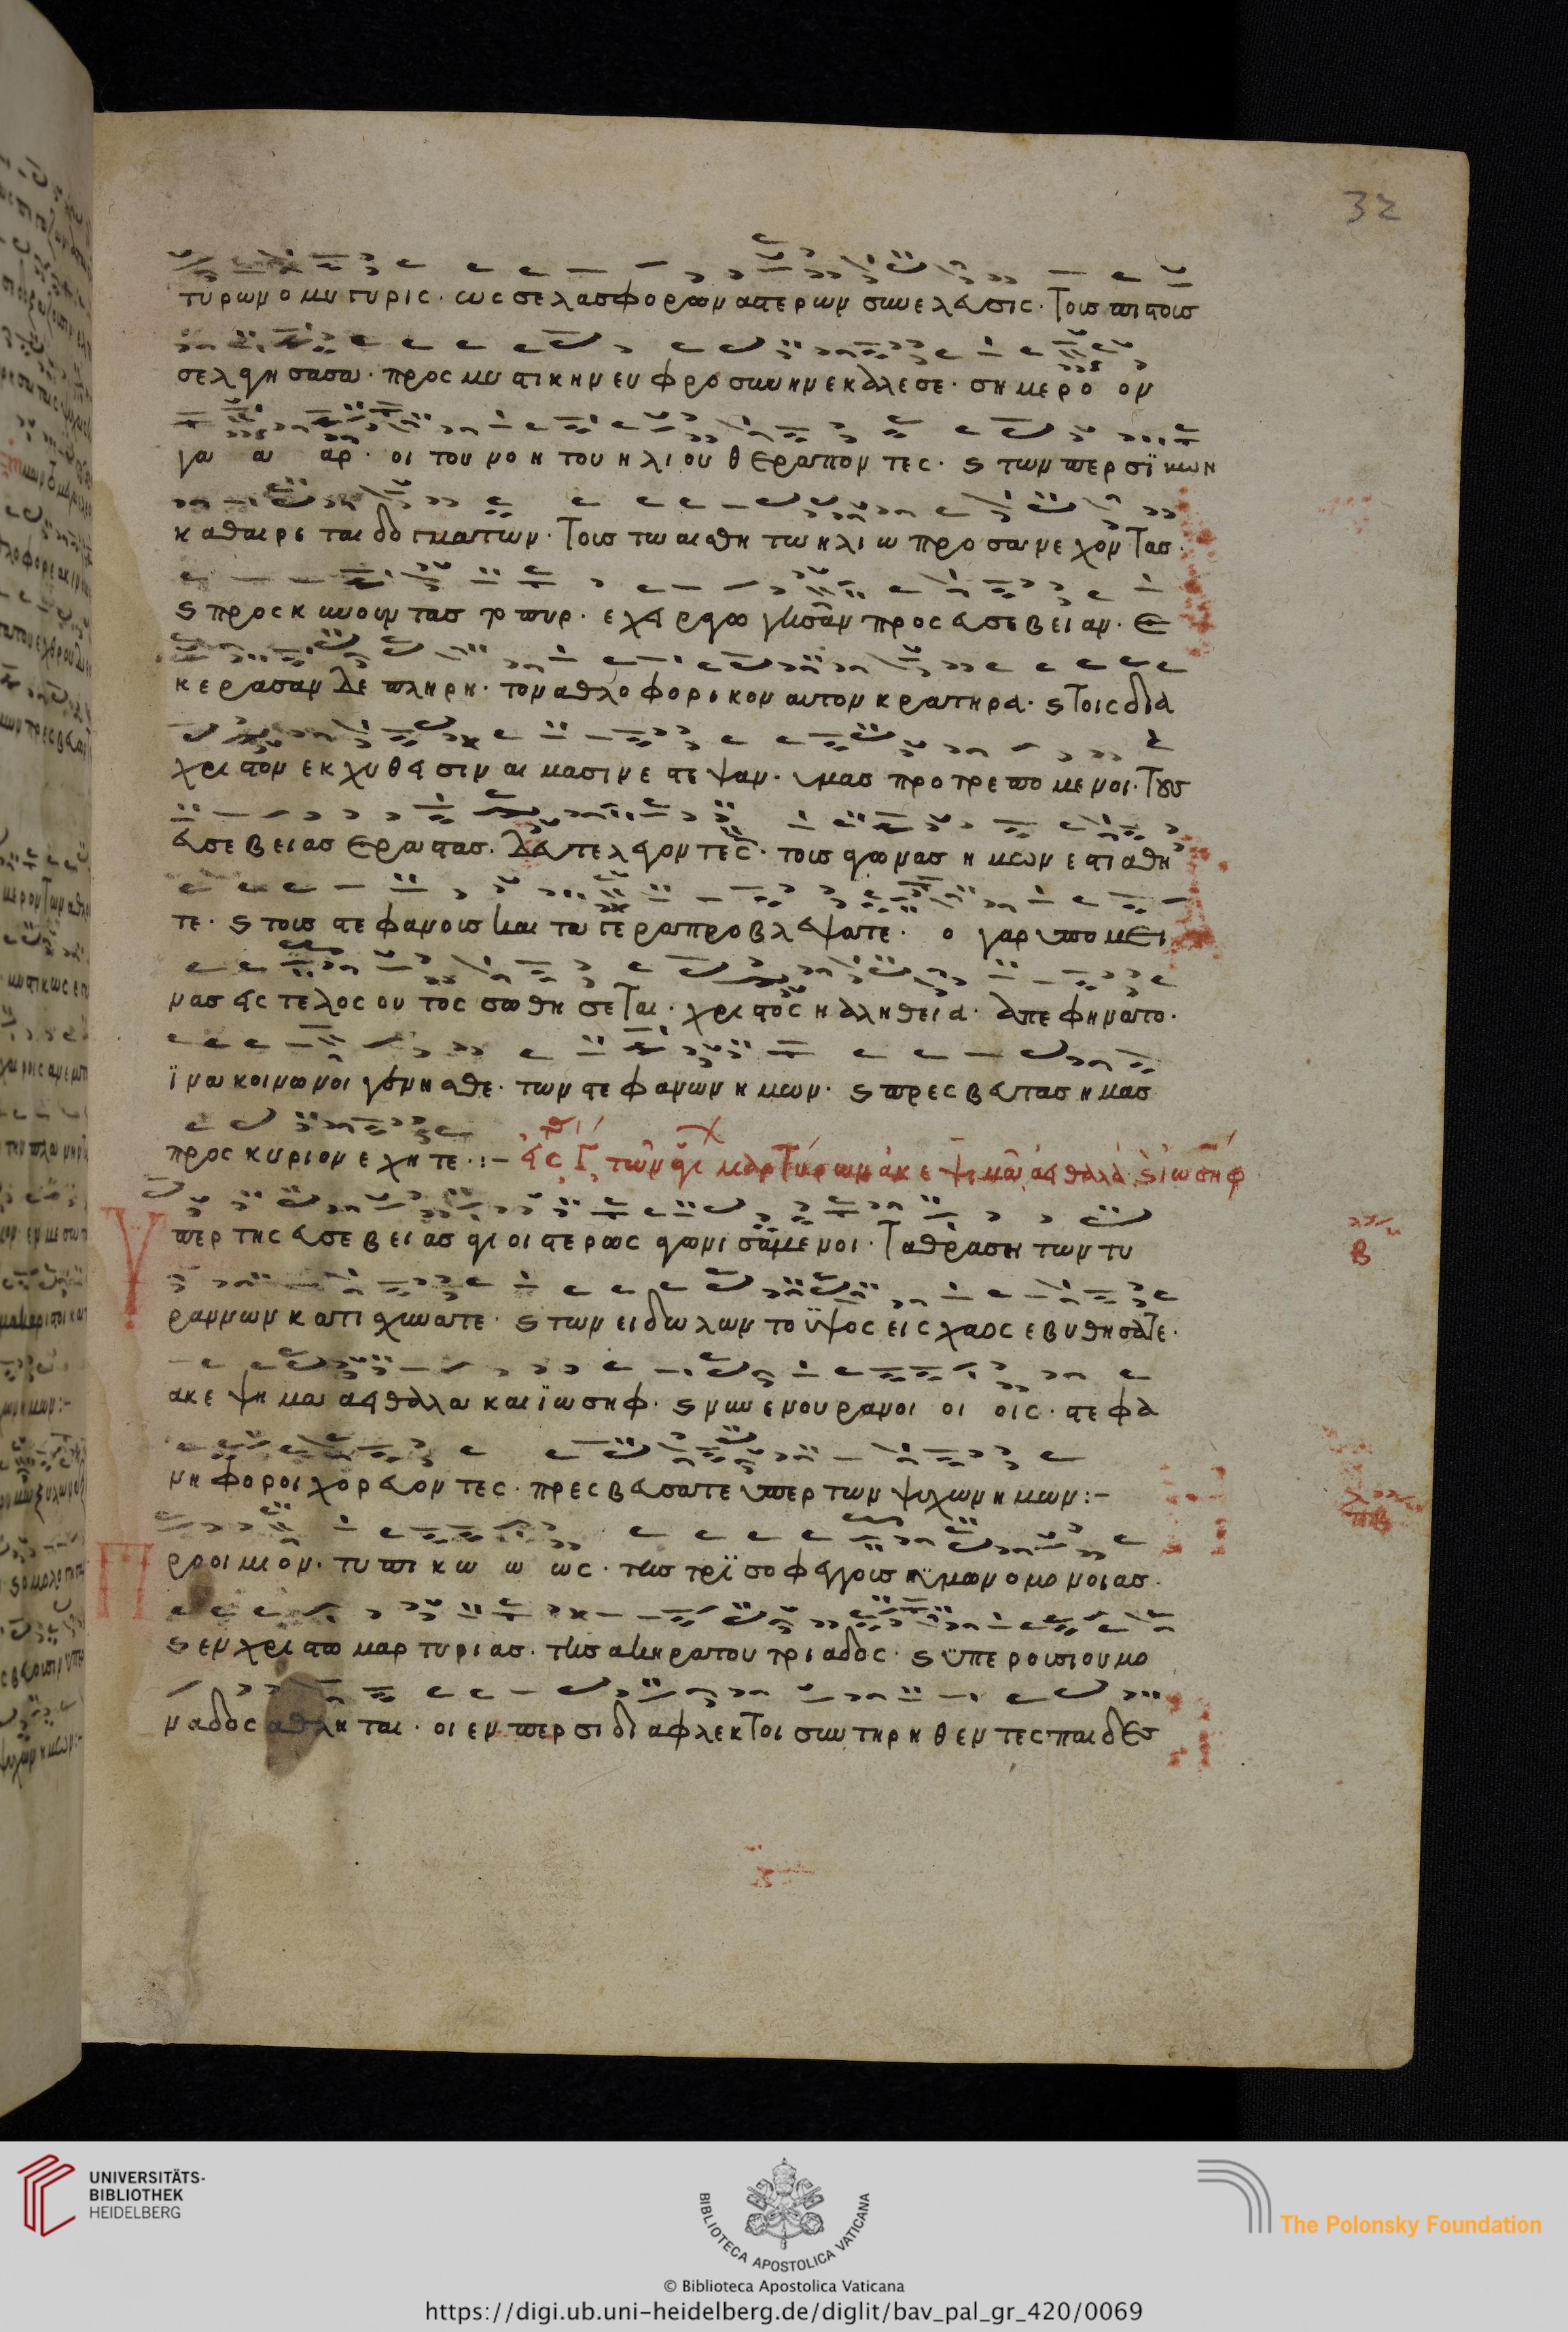 32
τυρων ο μυ τυρις · ως σελασφορων αστερων συνελευσις · Τοις πιστοις
σελ γη σασα · προς μυ στικην ευ φρο συνην εκαλεσε · ση μερο ον
γα α αρ · οι του νοη του ηλι ου θεραπον τες · ϗ των περ σϊ κων
καθαιρε ται δο γματων · Τοις τω αισθη τω ηλι ω προ σαν εχον Τας ·
ϗ προς κυνουν τας το πυρ · ε χειραγω γησαν προς ευσεβειαν · Ε
κερασαν δε πληρη · τον αθλο φορικον αυτον κρατηρα · ϗ Τοις δια
χριστον εκ χυθεισιν αι μασιν ε στεψαν · υμας προ τρε πο μενοι · Τους
ευσε βειας εραστας · τοις αγωνας η μων ε στι αθη
τε · ϗ τοις στεφανοις και τα τε ρα προβλεψατε · ο γαρ υπο μει
νας εις τελος ου τος σωθη σεΤαι · χριστος η αληθεια · απε φηνατο ·
ϊνα κοινωνοι γενησθε · των στε φανων η μων · ϗ πρες βευτας ημας
προς κυριον εχητε · : – εις Γ των αγι μαρτυρων ακε ψιμα αειθαλα ϗ ιωσηφ
Υ περ της ευσε βει ας αγι οι στερρως αγωνι σαμενοι · Τα θραση των τυ
ραννων κατι σχυνατε · ϗ των ειδω λων το ϋψος εις χαος ε βυθησαΤε ·
ακε ψη μα αειθαλα και ϊωσηφ · ϗ νυν εν ουρανοι οι οις · στε φα
νη φοροι χορευον τες · πρεσ βευσατε υπερ των ψυχων η μων : –
Π ροοιμι ον · τυ πι κω ω ως · της τρϊ σο φεγγους ϋμνων ο μο νοιας ·
ϗ εν χριστω μαρ τυριας · της ακηρατου τριαδος · ϗ ϋπε ρουσιου μο
ναδος αθλη ται · οι εν περ σι δι αφλεκΤοι συν τηρη θεν τες παιδες
β
UNIVERSITÄTS-
BIBLIOTHEK
HEIDELBERG
BIBLIOTECA APOSTOLICA VATICANA
The Polonsky Foundation
© Biblioteca Apostolica Vaticana
https://digi.ub.uni-heidelberg.de/diglit/bav_pal_gr_420/0069